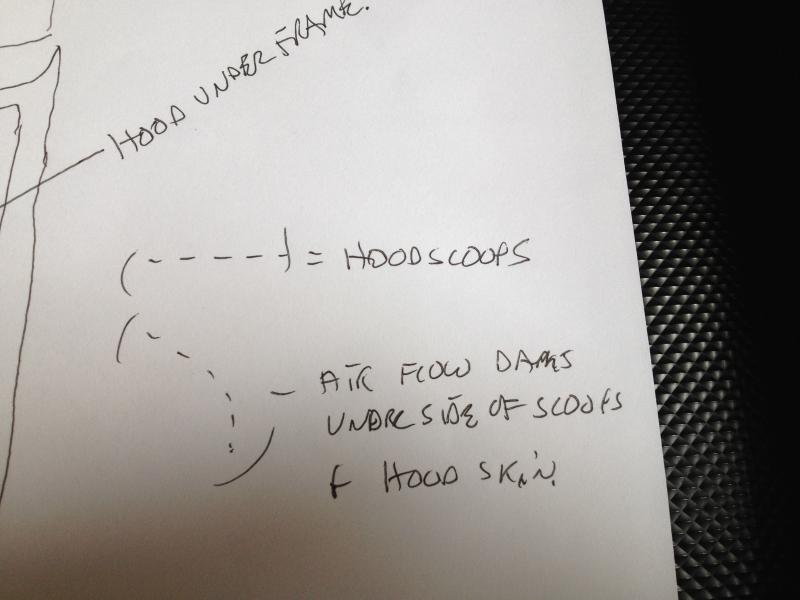 HOOD UNDER FRAME.
(----) = HOODSCOOPS
- AIR FLOW DAMS
UNDERSIDE OF SCOOPS
+ HOOD SKIN.